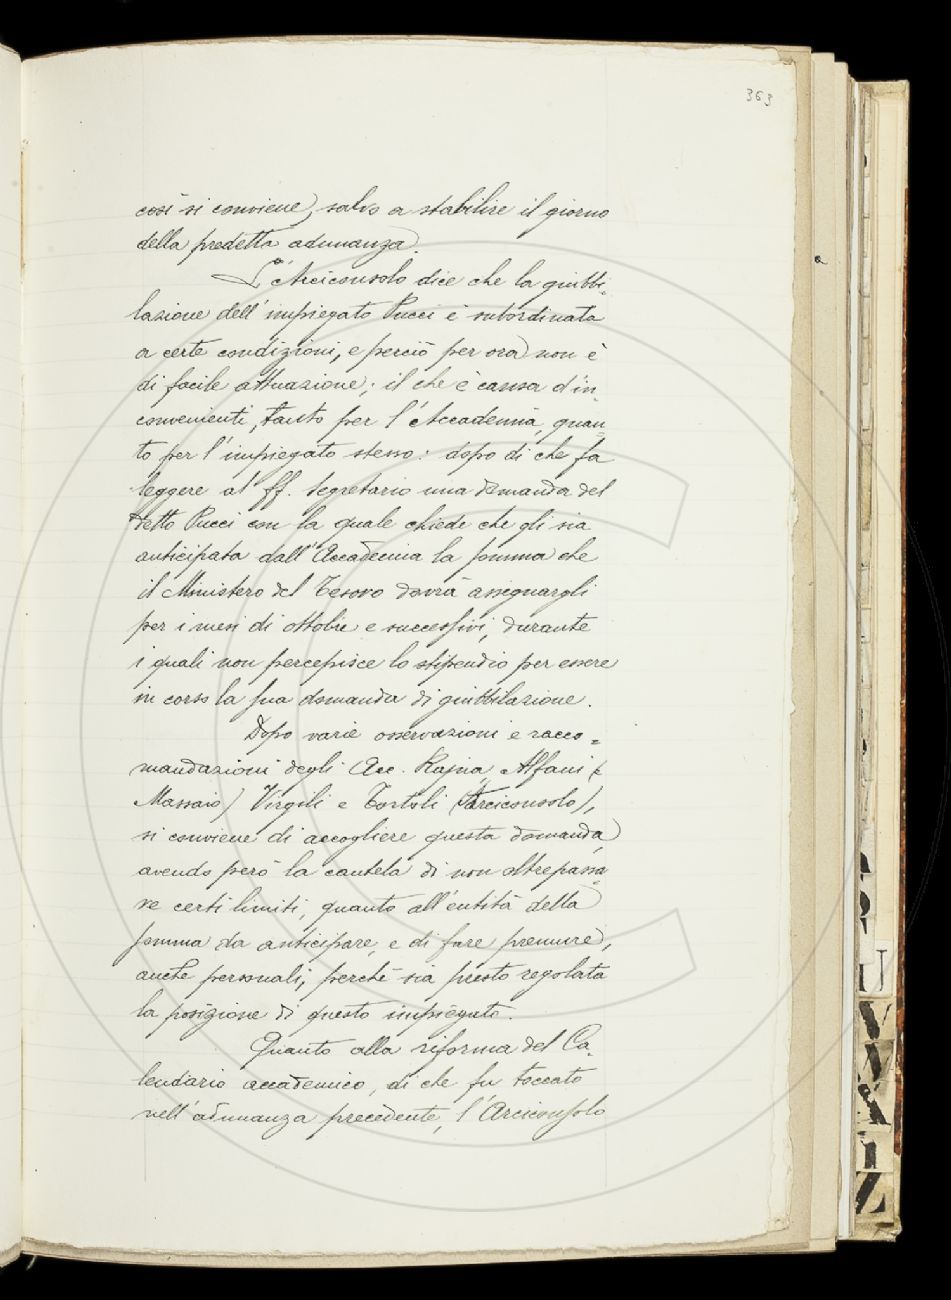 363
così si conviene, salvo a stabilire il giorno
della predetta adunanza.
L'Arciconsolo dice che la giubbi-
lazione dell'impiegato Pucci è subordinata
a certe condizioni, e perciò per ora non è
di facile attuazione; il che è causa d'in-
convenienti, tanto per l'Accademia, quan-
to per l'impiegato stesso: dopo di che fa
leggere al ff. Segretario una domanda del
detto Pucci con la quale chiede che gli sia
anticipata dall'Accademia la somma che
il Ministero del Tesoro dovrà assegnargli
per i mesi di ottobre e successivi, durante
i quali non percepisce lo stipendio per essere
in corso la sua domanda di giubbilazione.
Dopo varie osservazioni e racco=
mandazioni degli Acc. Rajna, Alfani (
Massaio) Virgili e Tortoli (Arciconsolo),
si conviene di accogliere questa domanda
avendo però la cautela di non oltrepassa-
re certi limiti, quanto all'entità della
somma da anticipare, e di fare premure,
anche personali, perchè sia presto regolata
la posizione di questo impiegato.
Quanto alla riforma del Ca-
lendario accademico, di che fu toccato
nell'adunanza precedente, l'Arciconsolo
a
U
V
W
X
Y
Z